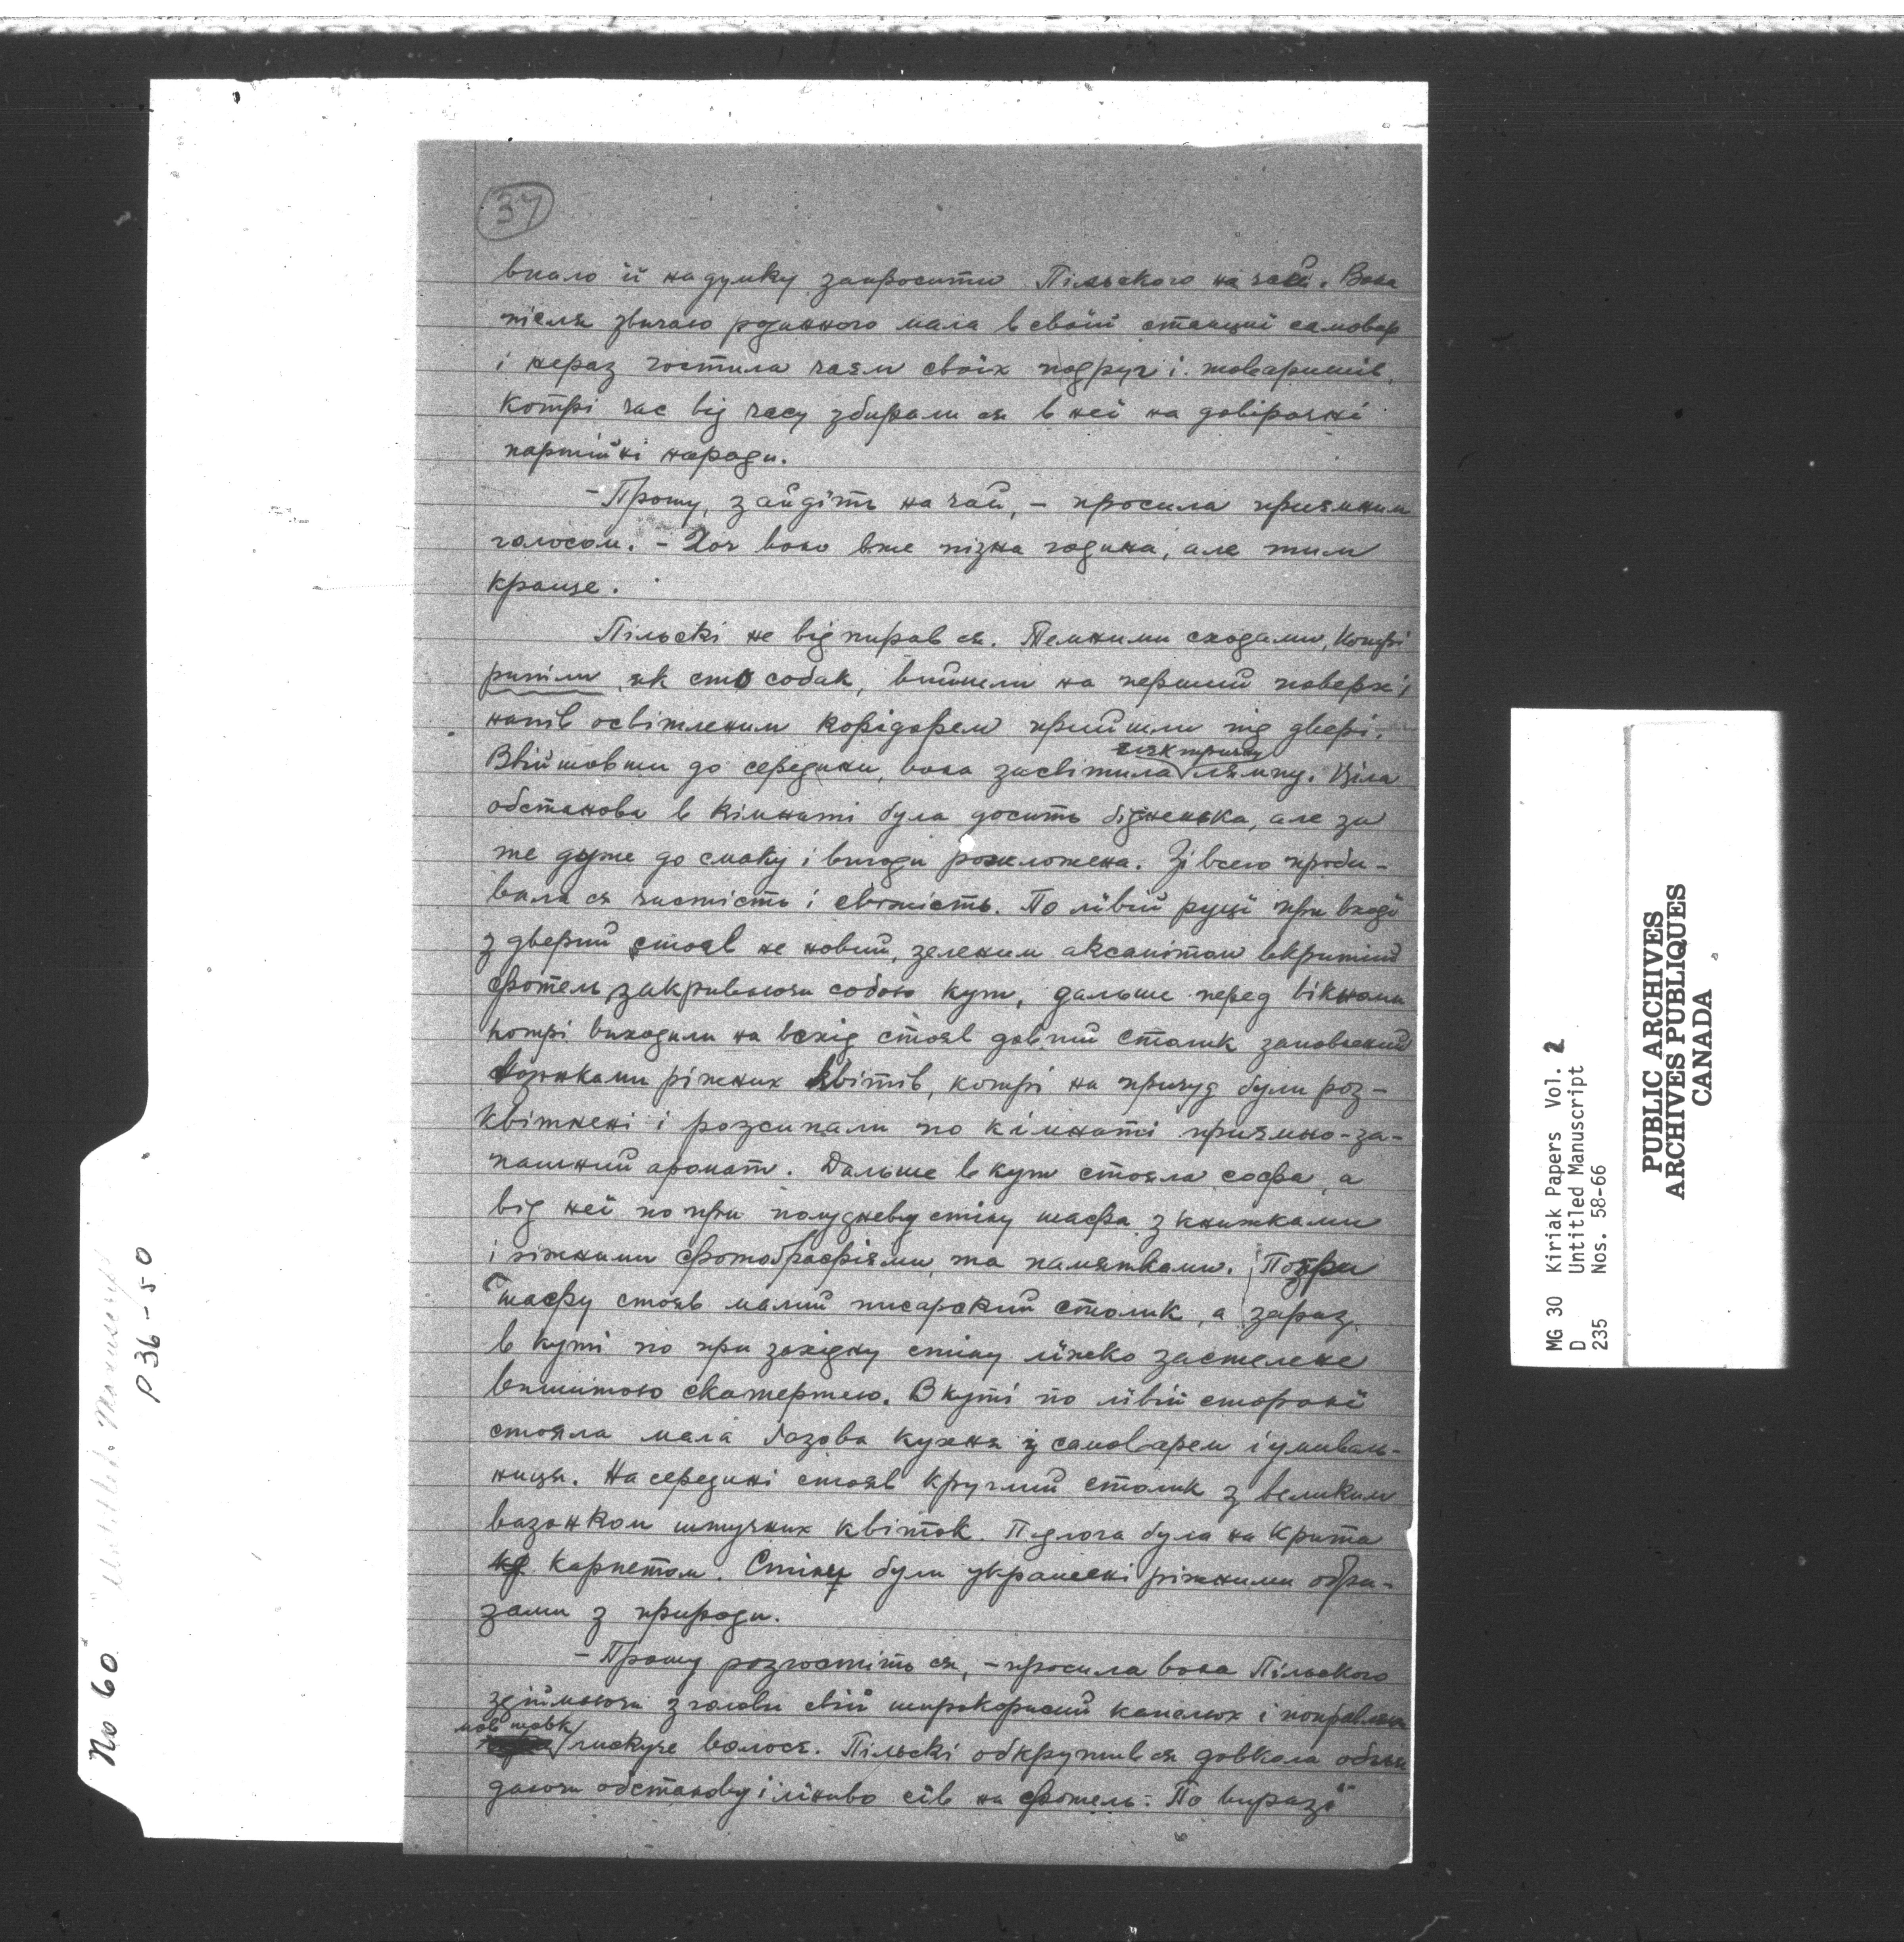 37
впало їй на думку запросити Пільского на чай. Вона
після звичаю родинного мала в своїй станциї самовар
і нераз гостила чаєм своїх подруг і товаришів,
котрі час від часу збирали ся в неї на довірочні
партийні наради.
- Прошу, зайдіть на чай, - просила приємним
голосом. - Хоч воно вже пізна година, але тим
краще.
Пільскі не відпирав ся. Темними сходами, котрі
рипіли як сто собак, вийшли на перший поверх і
напів освітленим корідором прийшли під двері.
електричну
Ввійшовши до середини, вона засвітила лямпу. Ціла
обстанова в кімнаті була досить бідненька, але за
те дуже до смаку і вигоди розложена. Зі всего проби-
вала ся чистість і свіжість. По лівій руці при вході
з дверий стояв не новий, зеленим аксамітом вкритий
фотель закриваючи собою кут, дальше перед вікнами
котрі виходили на всхід стояв довгий столик заповнений
вазонками ріжних квітів, котрі на причуд були роз-
квітнені і розсипали по кімнаті приємно-за-
пашний аромат. Дальше в кут стояла софа, а
від неї по при полудневу стіну шафа з книжками
і ріжними фотоґрафіями, та памятками. Попри
шафу стояв малий писарский столик, а зараз
в куті по при західну стіну ліжко застелене
вишитою скатертею. В куті по лівій стороні
стояла мала ґазова кухня з самоваром і умиваль-
ниця. На середині стояв круглий столик з великим
вазонком штучних квіток. Підлога була на крита
карпетом. Стіни були украшені ріжними обра-
зами з природи.
- Прошу розгостіть ся, - просила вона Пільского
здіймаючи з голови свій ширококрисий капелюх і поправляючи
мов шовк
лискуче волосє. Пільскі обкрутив ся довкола огля
даючи обстанову і ліниво сів на фотель. По виразі
No 60
P 36-50
MG 30 Kiriak Papers Vol. 2
D Untitled Manuscript
235 Nos. 58-66
PUBLIC ARCHIVES
ARCHIVES PUBLIQUES
CANADA